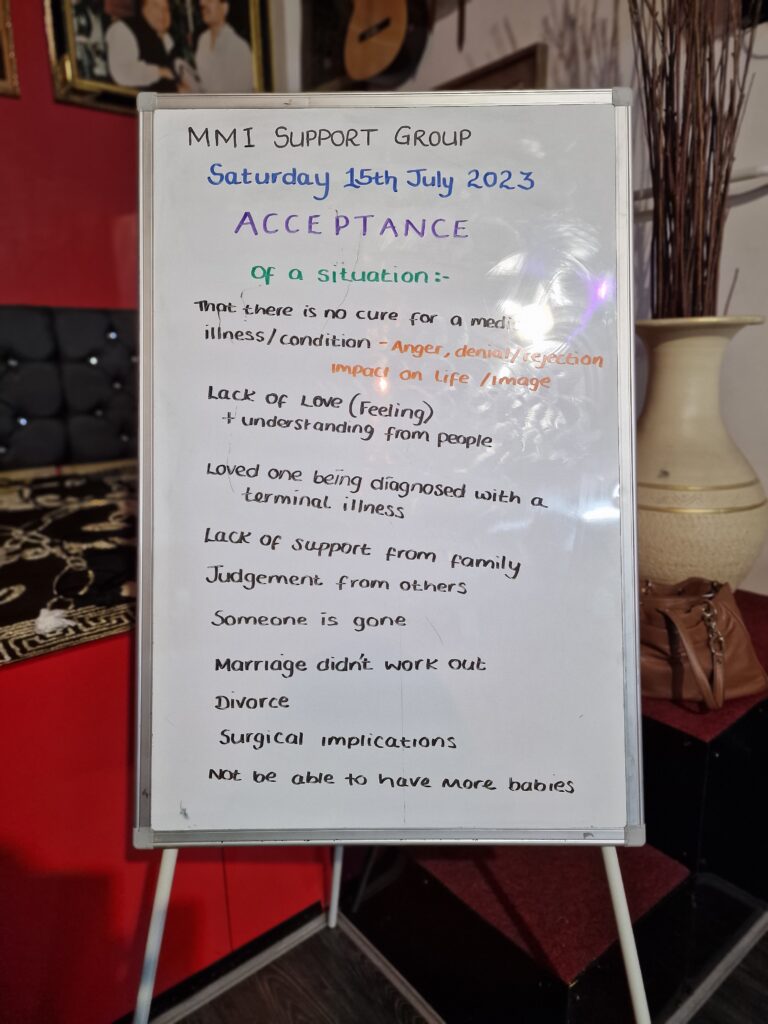 MMI SUPPORT GROUP
Saturday 15th July 2023
ACCEPTANCE
Of a situation:-
That there is no cure for a
illness/condition - Anger, denial/rejection
Impact on Life /image
Lack of Love (Feeling)
+ understanding from people
Loved one being diagnosed with a
terminal illness
Lack of support from family
Judgement from others
Someone is gone
Marriage didn't work out
Divorce
Surgical implications
Not be able to have more babies